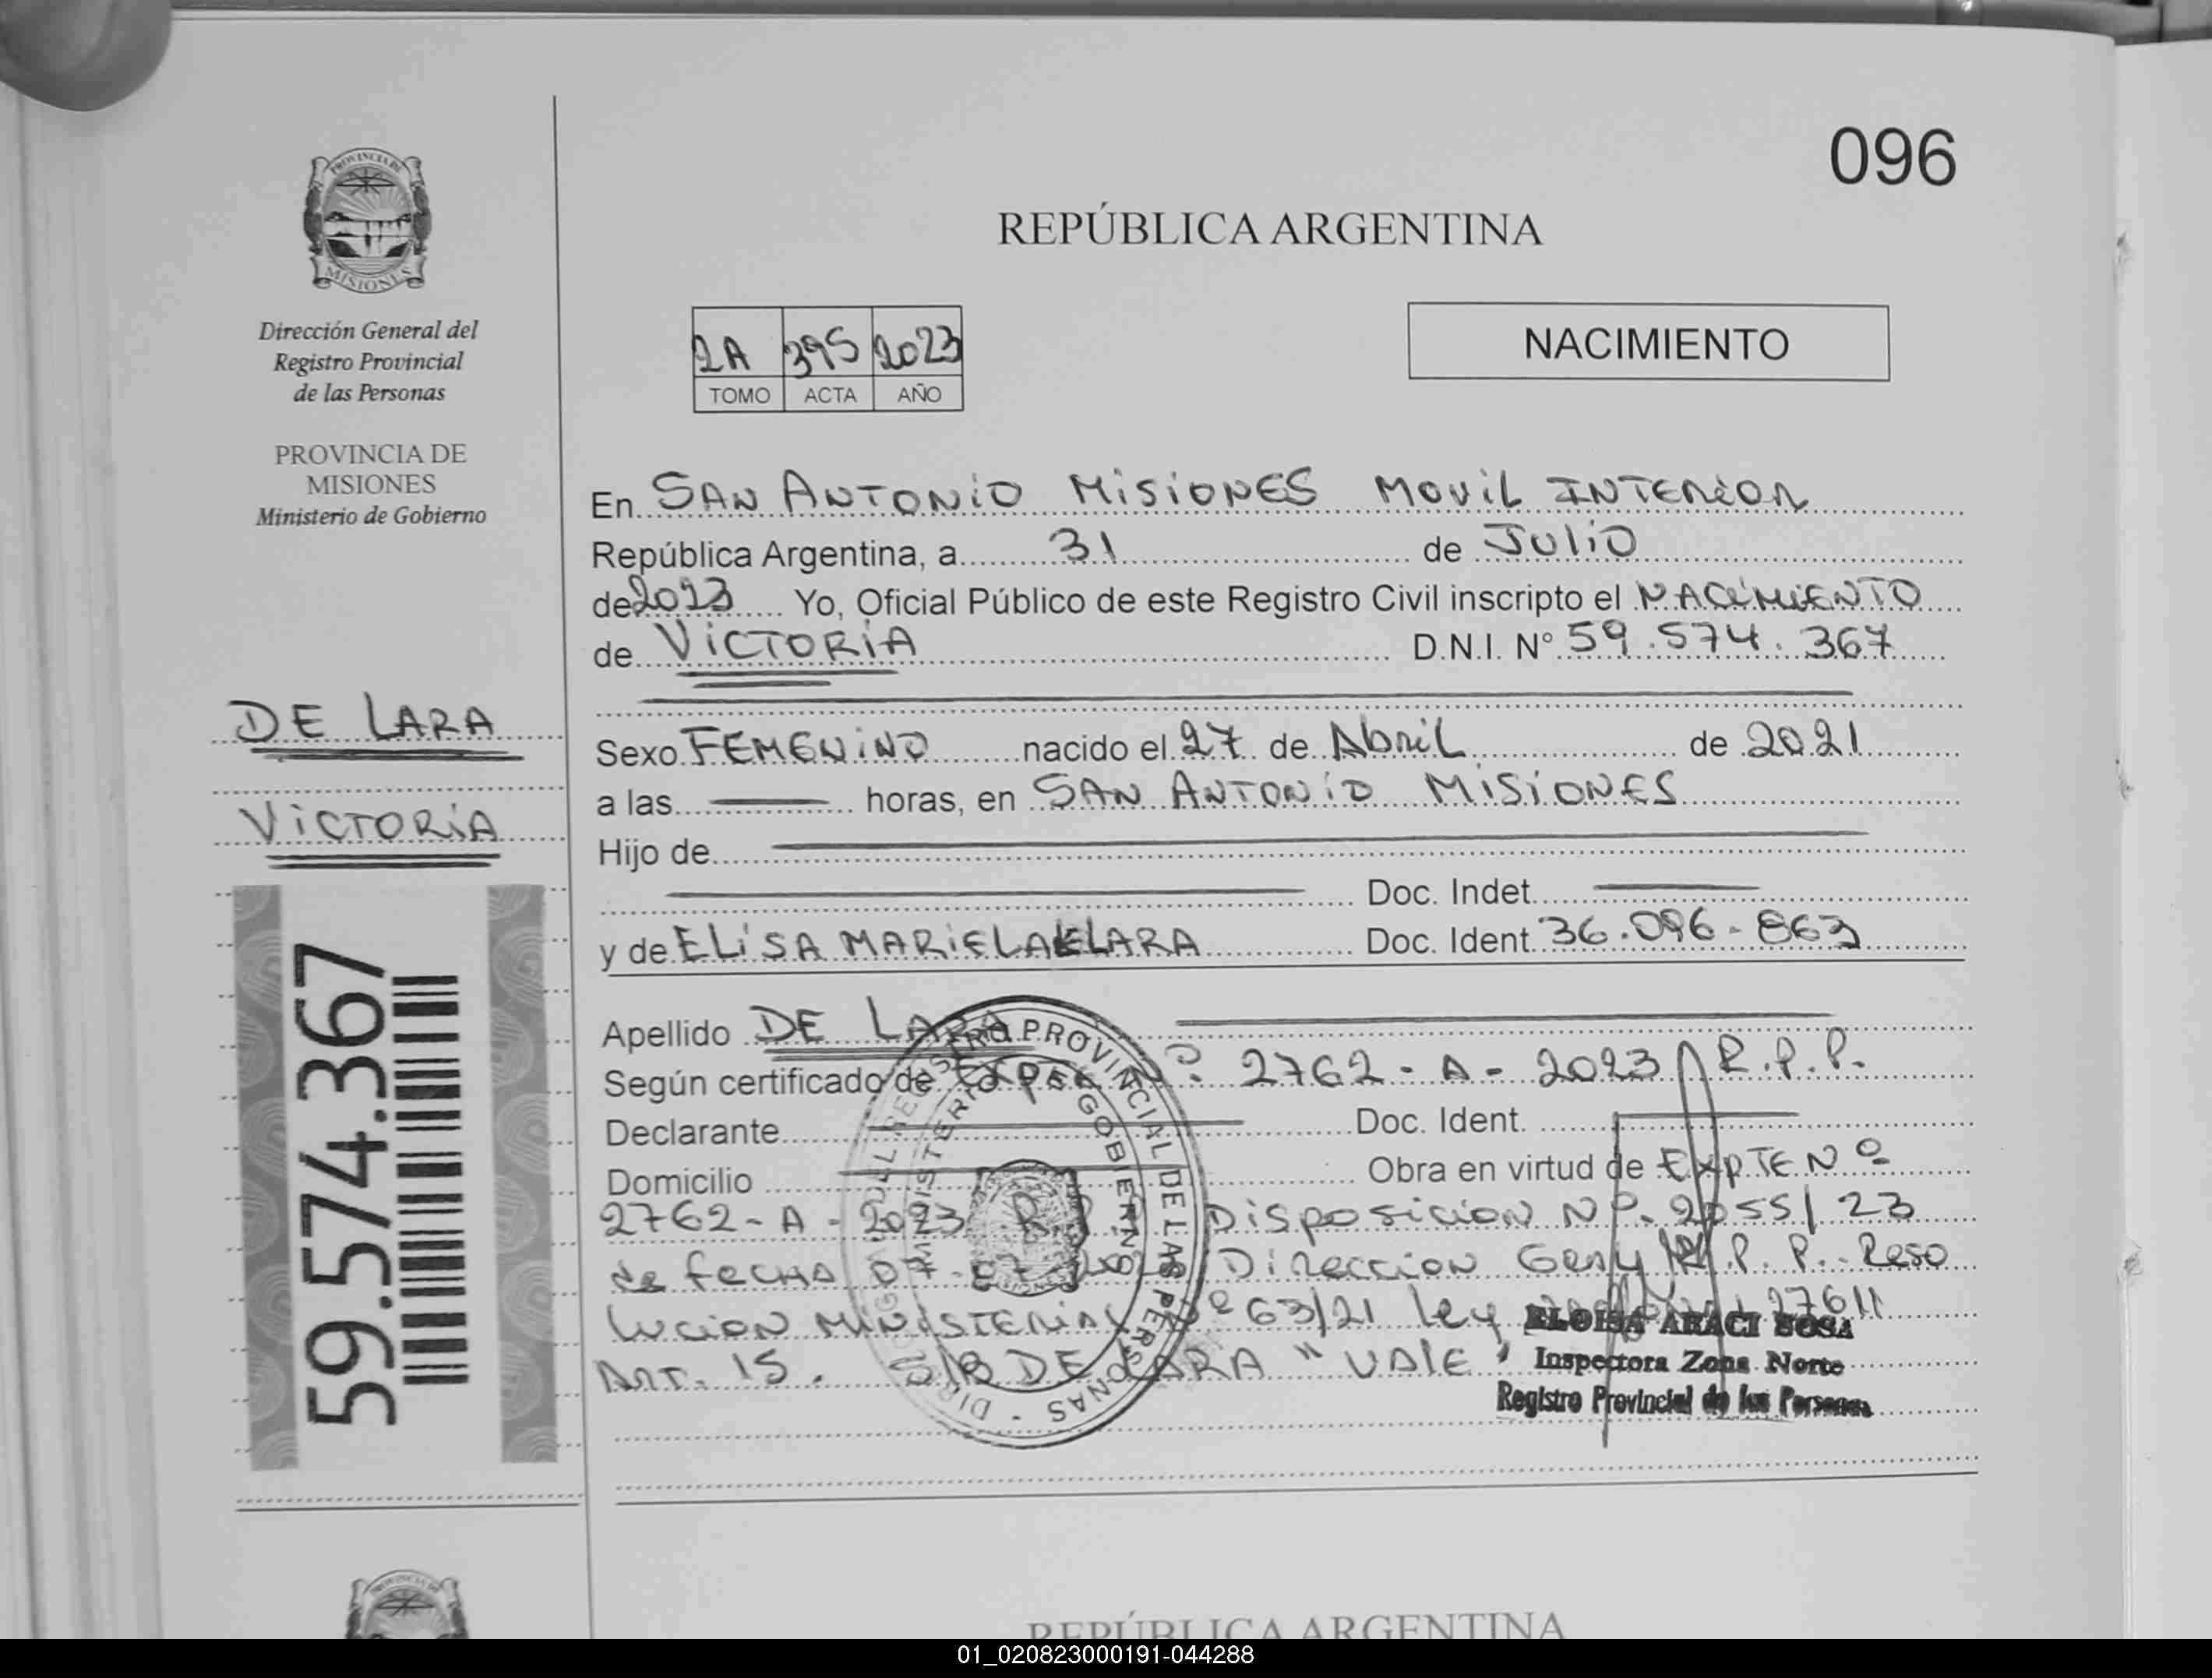 096
PROVINCIA DE
MISIONES
Dirección General del
Registro Provincial
de las Personas
PROVINCIA DE
MISIONES
Ministerio de Gobierno
DE LARA
VICTORIA
59.574.367
REPÚBLICA ARGENTINA
2A 395 2023
TOMO ACTA AÑO
NACIMIENTO
En SAN ANTONIO MISIONES MOVIL INTERIOR
República Argentina, a 31 de JULIO
de 2023 Yo, Oficial Público de este Registro Civil inscripto el NACIMIENTO
de VICTORIA D.N.I. Nº 59.574.367
Sexo FEMENINO nacido el 27 de Abril de 2021
a las horas, en SAN ANTONIO MISIONES
Hijo de
Doc. Indet.
y de ELISA MARIELA LARA Doc. Ident. 36.096-863
Apellido DE LARA
Según certificado de EXPTE Nº 2762-A-2023 R.P.P.
Declarante Doc. Ident.
Domicilio Obra en virtud de EXPTE Nº
2762-A-2023 R.P.P. Disposicion Nº 2055/23
de fecha 07- Direccion Gen R.P.P.- Reso
lucion MINISTERIAL Nº 63/21 ley 27611
Art. 15. S/B DE LARA "VALE"
DIRECCION GRAL DEL REGISTRO PROVINCIAL DE LAS PERSONAS
MINISTERIO DE GOBIERNO
ELOISA ARACI SOSA
Inspectora Zona Norte
Registro Provincial de las Personas
REPÚBLICA ARGENTINA
01_020823000191-044288